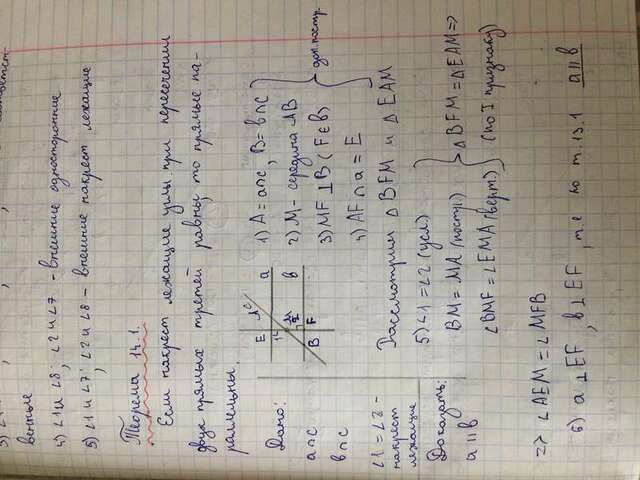 венные
4) ∠1 и ∠8; ∠2 и ∠7 - внешние односторонние
5) ∠1 и ∠7; ∠2 и ∠8 - внешние накрест лежащие
Теорема 14.1.
Если накрест лежащие углы при пересечении
двух прямых третей равны, то прямые па-
раллельны.
Дано:
a∩c
b∩c
∠1 = ∠2 -
накрест
лежащие
Доказать:
a || b
E A c
1 a
M
2 b
B F
1) A = a∩c, B = b∩c
2) M - середина AB
3) MF ⊥ B (F ∈ b)
4) AF ∩ a = E
доп. постр.
Рассмотрим △BFM и △EAM
5) ∠1 = ∠2 (усл.)
BM = MA (постр.)
∠BMF = ∠EMA (верт.)
△BFM = △EAM =>
(по I признаку)
=> ∠AEM = ∠MFB
6) a ⊥ EF, b ⊥ EF, т.е по т.13.1 a || b